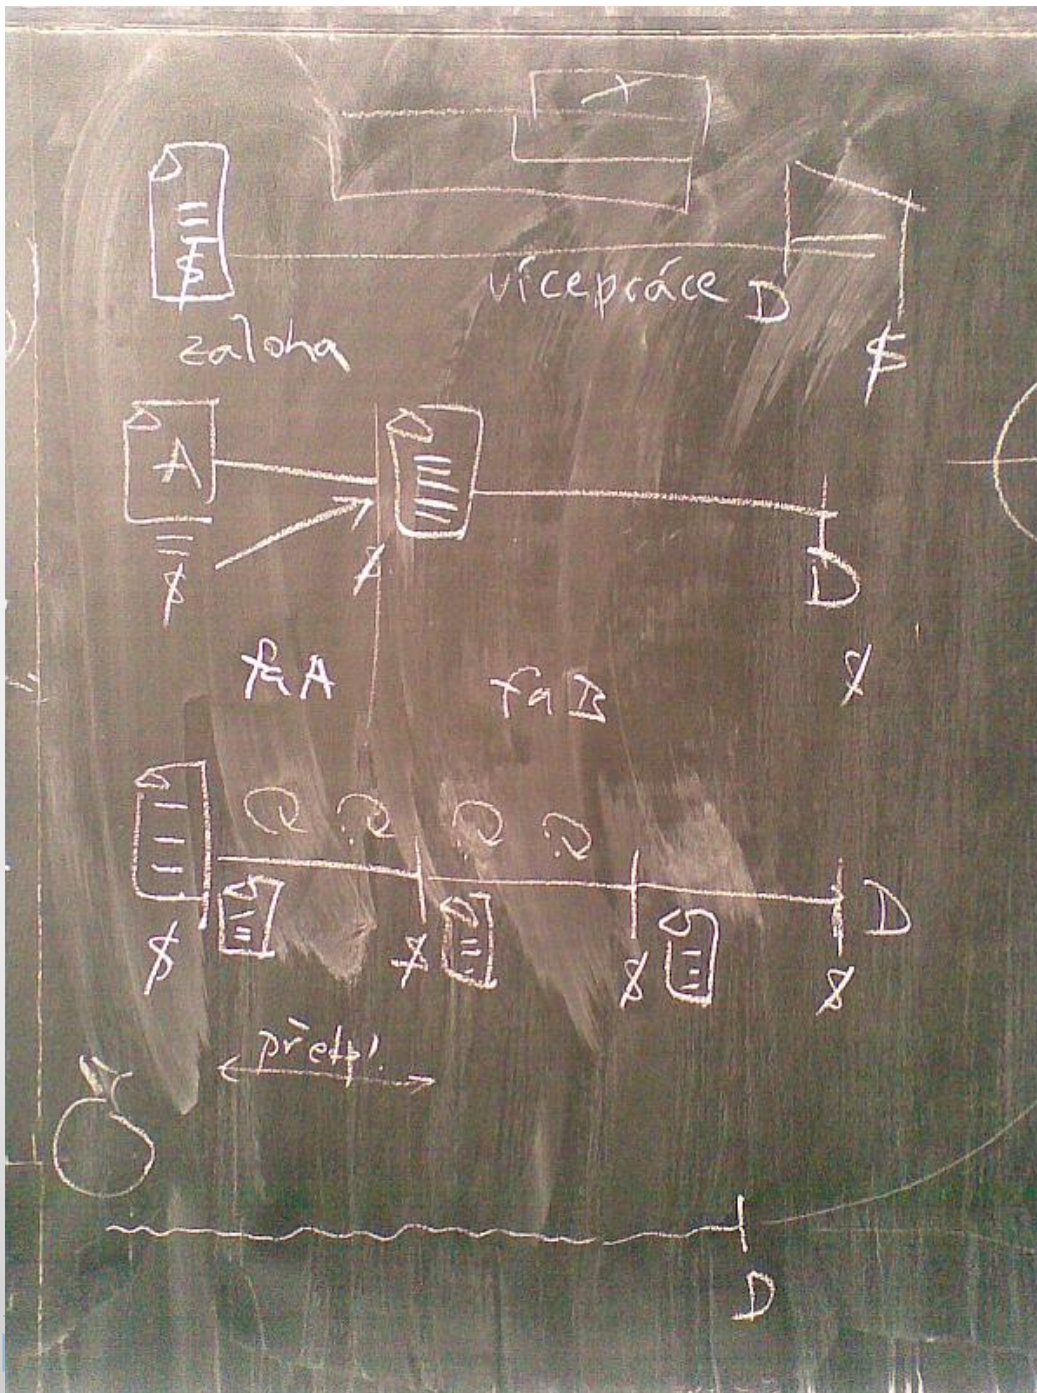 $
vícepráce D
záloha
$
A
$
$
D
fa A
fa B
$
D
$
$
$
$
předpl.
D